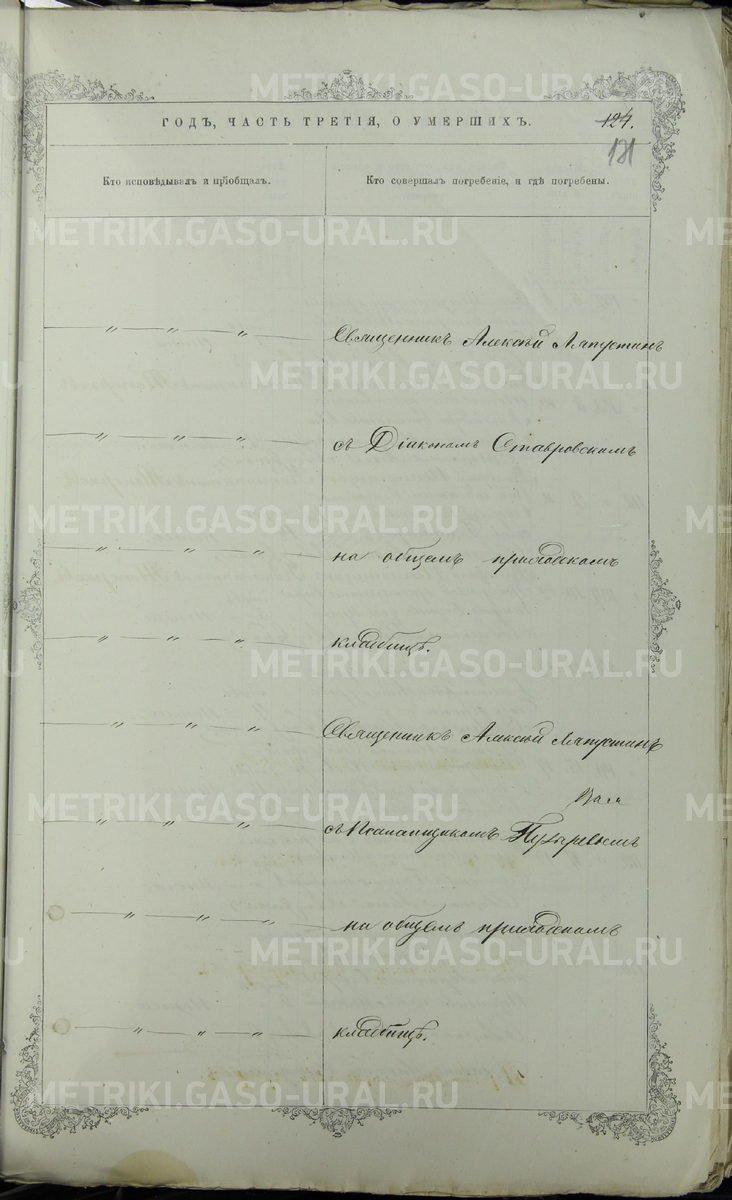 ГОДЪ, ЧАСТЬ ТРЕТІЯ, О УМЕРШИХЪ.
124.
131
Кто исповѣдывалъ и пріобщалъ.
Кто совершалъ погребеніе, и гдѣ погребены.
— " — " — " — Священникъ Алексѣй Ляпустинъ
— " — " — " — съ Діакономъ Ставровскимъ
— " — " — " — на общемъ приходскомъ
— " — " — " — кладбищѣ.
— " — " — " — Священникъ Алексѣй Ляпустинъ
— " — " — " — съ Псаломщикомъ Пузыревымъ
— " — " — " — на общемъ приходскомъ
— " — " — " — кладбищѣ.
METRIKI.GASO-URAL.RU